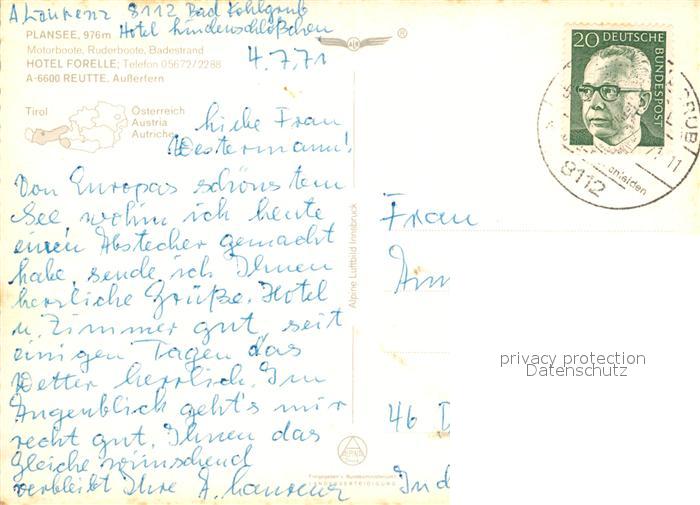 A Laurenz 8112 Bad Kohlgrub
Hotel Lindenschlößchen
4.7.71
PLANSEE, 976m
Motorboote, Ruderboote, Badestrand
HOTEL FORELLE; Telefon 05672/2288
A-6600 REUTTE, Außerfern
Tirol
Österreich
Austria
Autriche
®
20 DEUTSCHE BUNDESPOST
8112
11
Liebe Frau
Westermann!
Von Europas schönstem
See wohin ich heute
einen Abstecher gemacht
habe, sende ich Ihnen
herzliche Grüße. Hotel
u. Zimmer gut, seit
einigen Tagen das
Wetter herrlich. Im
Augenblick geht's mir
recht gut. Ihnen das
gleiche wünschend
verbleibt Ihre A. Laurenz
Alpine Luftbild Innsbruck
Frau
46 D
privacy protection
Datenschutz
Freigegeben v. Bundesministerium f.
LANDESVERTEIDIGUNG